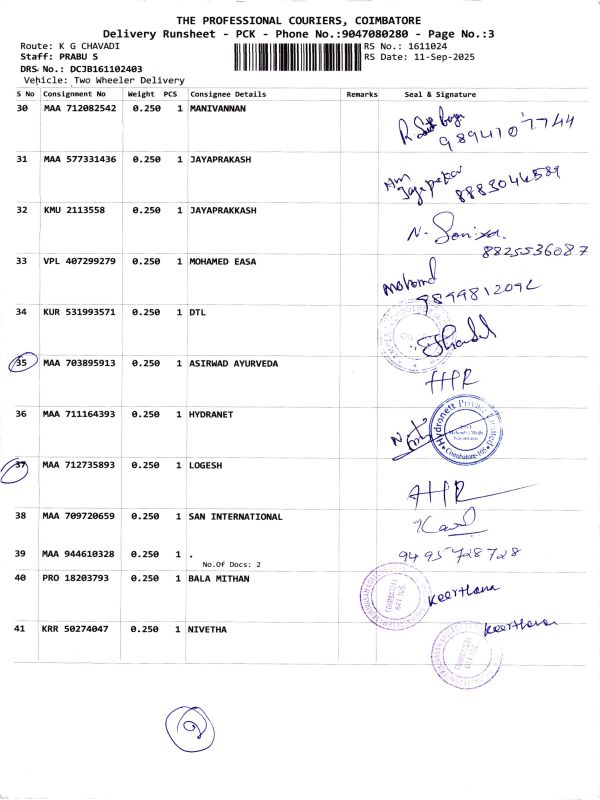 THE PROFESSIONAL COURIERS, COIMBATORE
Delivery Runsheet - PCK - Phone No.:9047080280 - Page No.:3
Route: K G CHAVADI RS No.: 1611024
Staff: PRABU S RS Date: 11-Sep-2025
DRS No.: DCJB161102403
Vehicle: Two Wheeler Delivery
S No Consignment No Weight PCS Consignee Details Remarks Seal & Signature
30 MAA 712082542 0.250 1 MANIVANNAN
9894107744
31 MAA 577331436 0.250 1 JAYAPRAKASH
8883044589
32 KMU 2113558 0.250 1 JAYAPRAKKASH
8825536087
33 VPL 407299279 0.250 1 MOHAMED EASA
Mohamd
34 KUR 531993571 0.250 1 DTL
35 MAA 703895913 0.250 1 ASIRWAD AYURVEDA
HPR
36 MAA 711164393 0.250 1 HYDRANET
Hydronett Private Limited
Coimbatore-105
37 MAA 712735893 0.250 1 LOGESH
HPR
38 MAA 709720659 0.250 1 SAN INTERNATIONAL
39 MAA 944610328 0.250 1 . 9495728728
No.Of Docs: 2
40 PRO 18203793 0.250 1 BALA MITHAN
Keerthana
41 KRR 50274047 0.250 1 NIVETHA
Keerthana